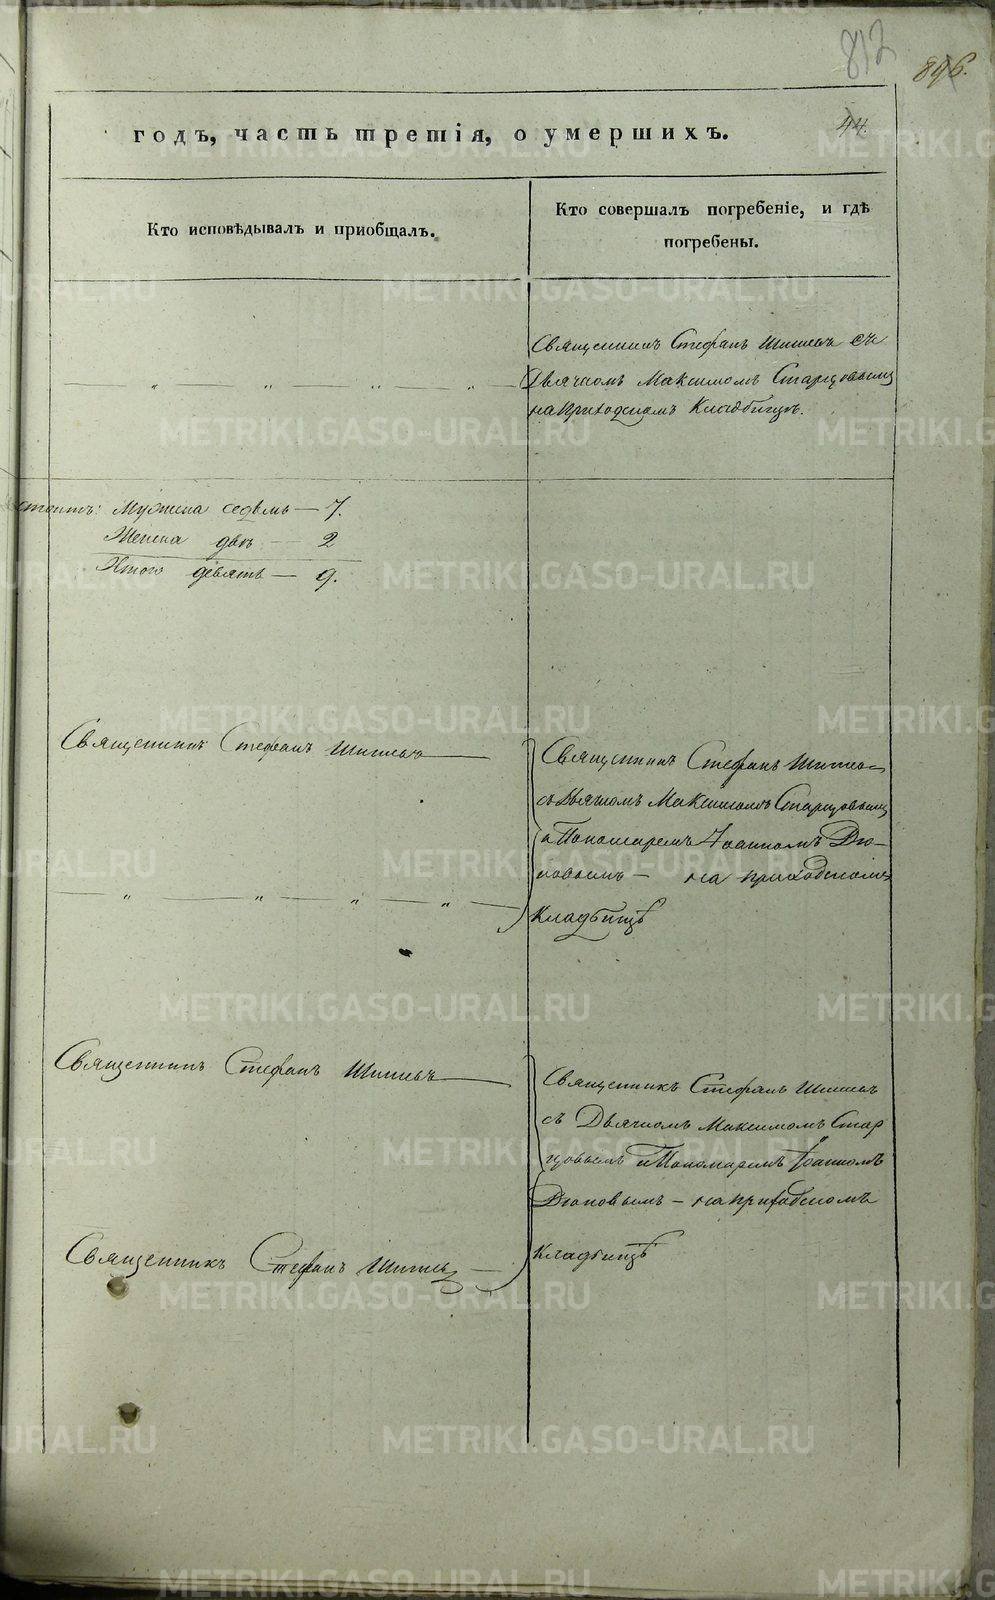 812
896.
44.
годъ, часть третія, о умершихъ.
Кто исповѣдывалъ и пріобщалъ.
Кто совершалъ погребеніе, и гдѣ
погребены.
Священникъ Стефанъ Шишевъ съ
Дьячкомъ Максимомъ Старцовымъ
на приходскомъ Кладбищѣ.
Мужеска седьмь — 7.
Женска двѣ — 2
Итого девять — 9.
Священникъ Стефанъ Шишевъ
Священникъ Стефанъ Шишевъ
съ Дьячкомъ Максимомъ Старцовымъ
и Пономаремъ Іоанномъ Дю-
ковымъ — на приходскомъ
Кладбищѣ
Священникъ Стефанъ Шишевъ
Священникъ Стефанъ Шишевъ
съ Дьячкомъ Максимомъ Стар
цовымъ и Пономаремъ Іоанномъ
Дюковымъ — на приходскомъ
Кладбищѣ
Священникъ Стефанъ Шишевъ
METRIKI.GASO-URAL.RU